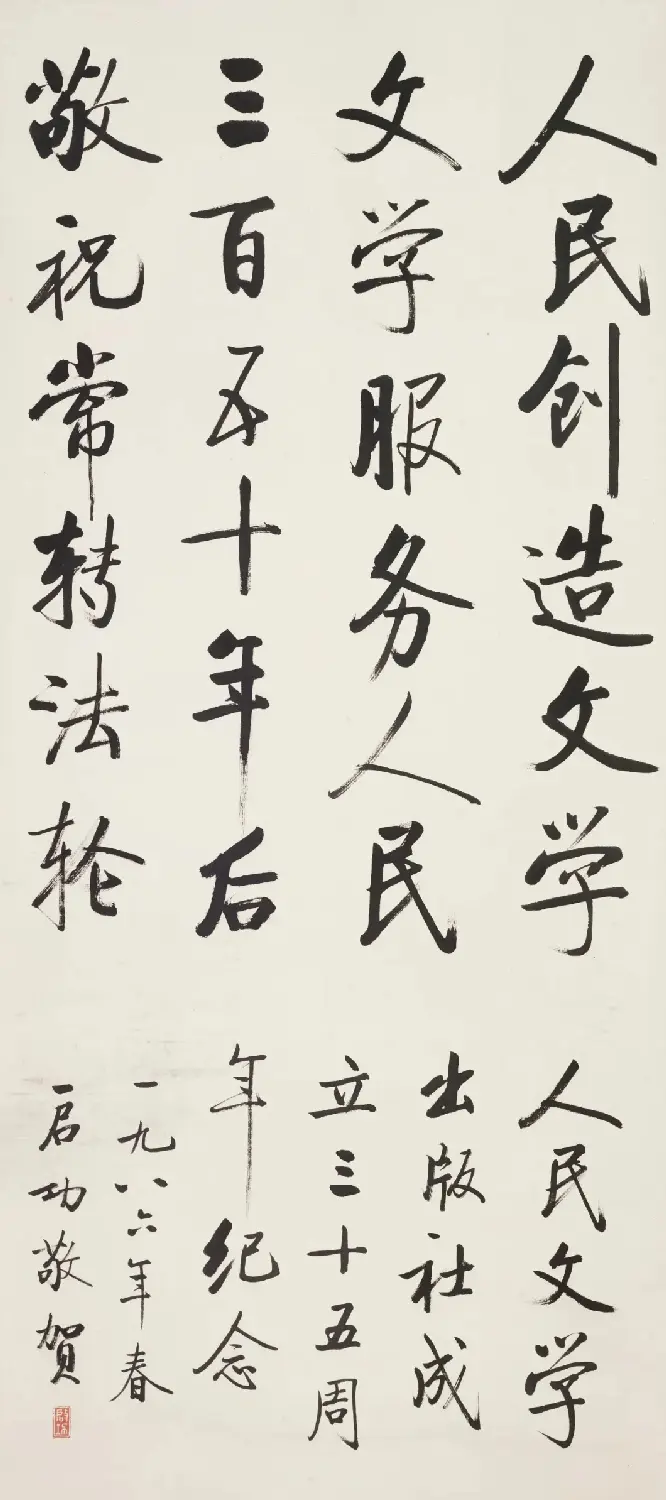 人民创造文学
文学服务人民
三百五十年后
敬祝常转法轮
人民文学
出版社成
立三十五周
年纪念
一九八六年春
启功敬贺